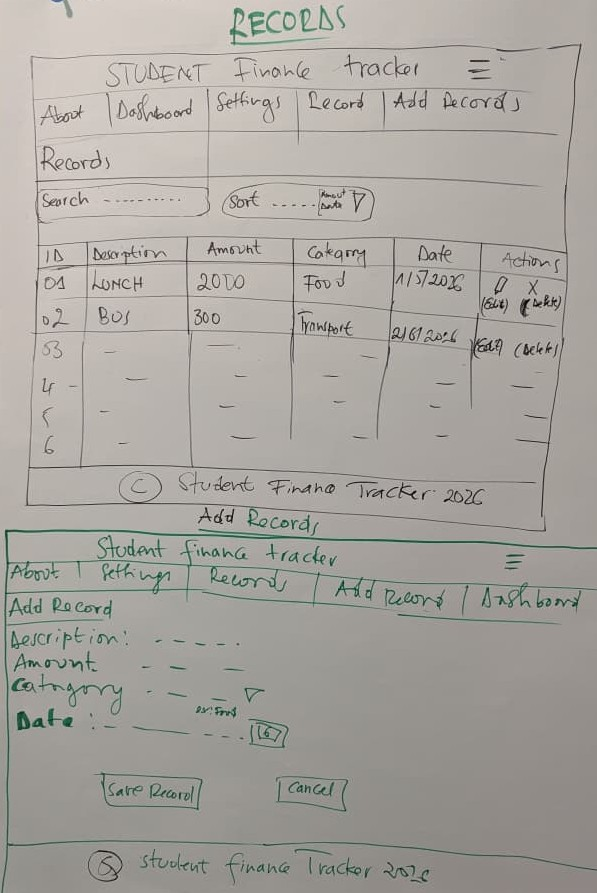 RECORDS
STUDENT Finance tracker
About | Dashboard | Settings | Record | Add Records
Records
Search ---------- Sort ----- Amount
Date
ID Description Amount Category Date Actions
01 LUNCH 2000 Food 1/5/2026 X
(Edit) (Delete)
02 BUS 300 Transport 2/6/2026 (Edit) (Delete)
03 - - - -
4 - - - - - -
5 - - - - -
6 - - - - -
C Student Finance Tracker 2026
Add Records
Student finance tracker
About | Settings | Records | Add Record | Dashboard
Add Record
Description: - - - - -
Amount - - -
Catagory - - -
Date : - - - - -
Save Record Cancel
student finance Tracker 2026